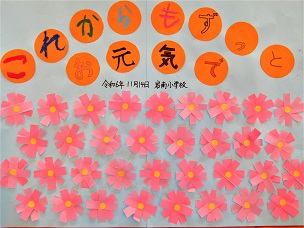 これからもずっと
お元気で
令和5年 11月14日 岩南小学校